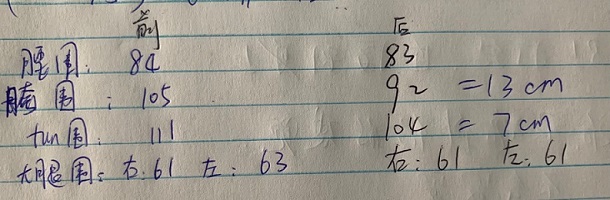 前 后
腰围: 84 83
脐围: 105 92 =13cm
tun围: 111 104 = 7cm
大腿围: 右:61 左: 63 右: 61 左: 61